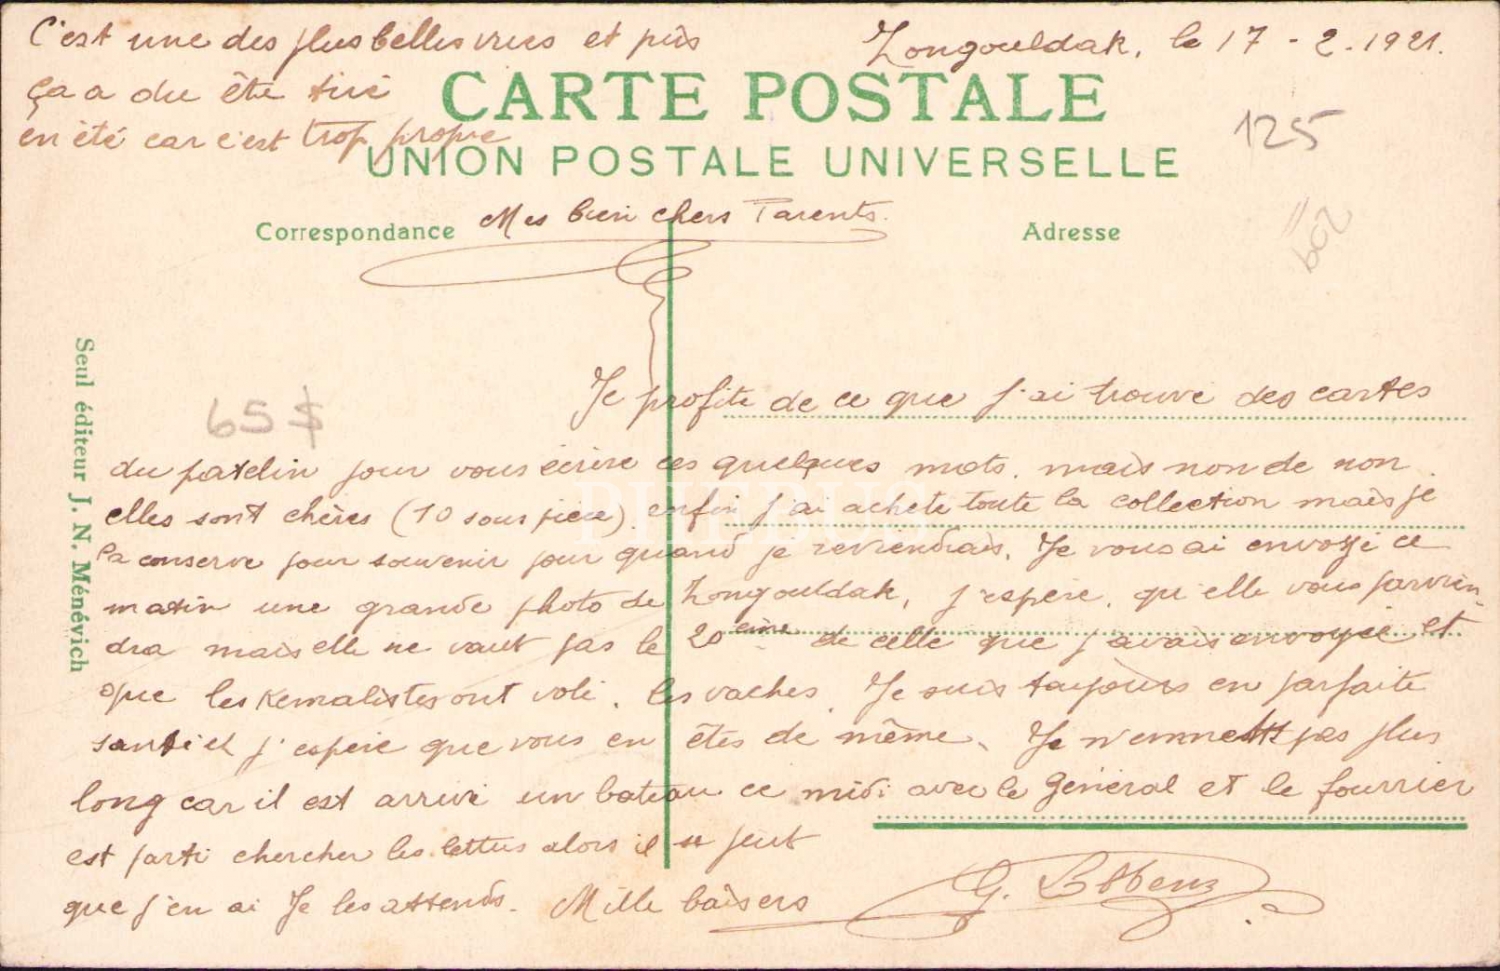 C'est une des plus belles vues et puis
ça a du être tiré
en été car c'est trop propre
Zongouldak, le 17-2-1921.
CARTE POSTALE
UNION POSTALE UNIVERSELLE
125
Correspondance
Mes bien chers Parents.
Adresse
Seul éditeur J. N. Ménévich
65 $
Je profite de ce que j'ai trouvé des cartes
du patelin pour vous écrire ces quelques mots. mais non de non
elles sont chères (10 sous pièce). enfin j'ai acheté toute la collection mais je
la conserve pour souvenir pour quand je reviendrais. Je vous ai envoyé ce
matin une grande photo de Zongouldak, j'espère, qu'elle vous parvien-
dra mais elle ne vaut pas le 20ème de celle que j'avais envoyée et
que les Kemalistes ont volé. les vaches. Je suis toujours en parfaite
santé et j'espère que vous en êtes de même. Je n'en mets pas plus
long car il est arrivé un bateau ce midi avec le Général et le fourrier
est parti chercher les lettres alors il se peut
que j'en ai Je les attends. Mille baisers
G.
PHEBUS